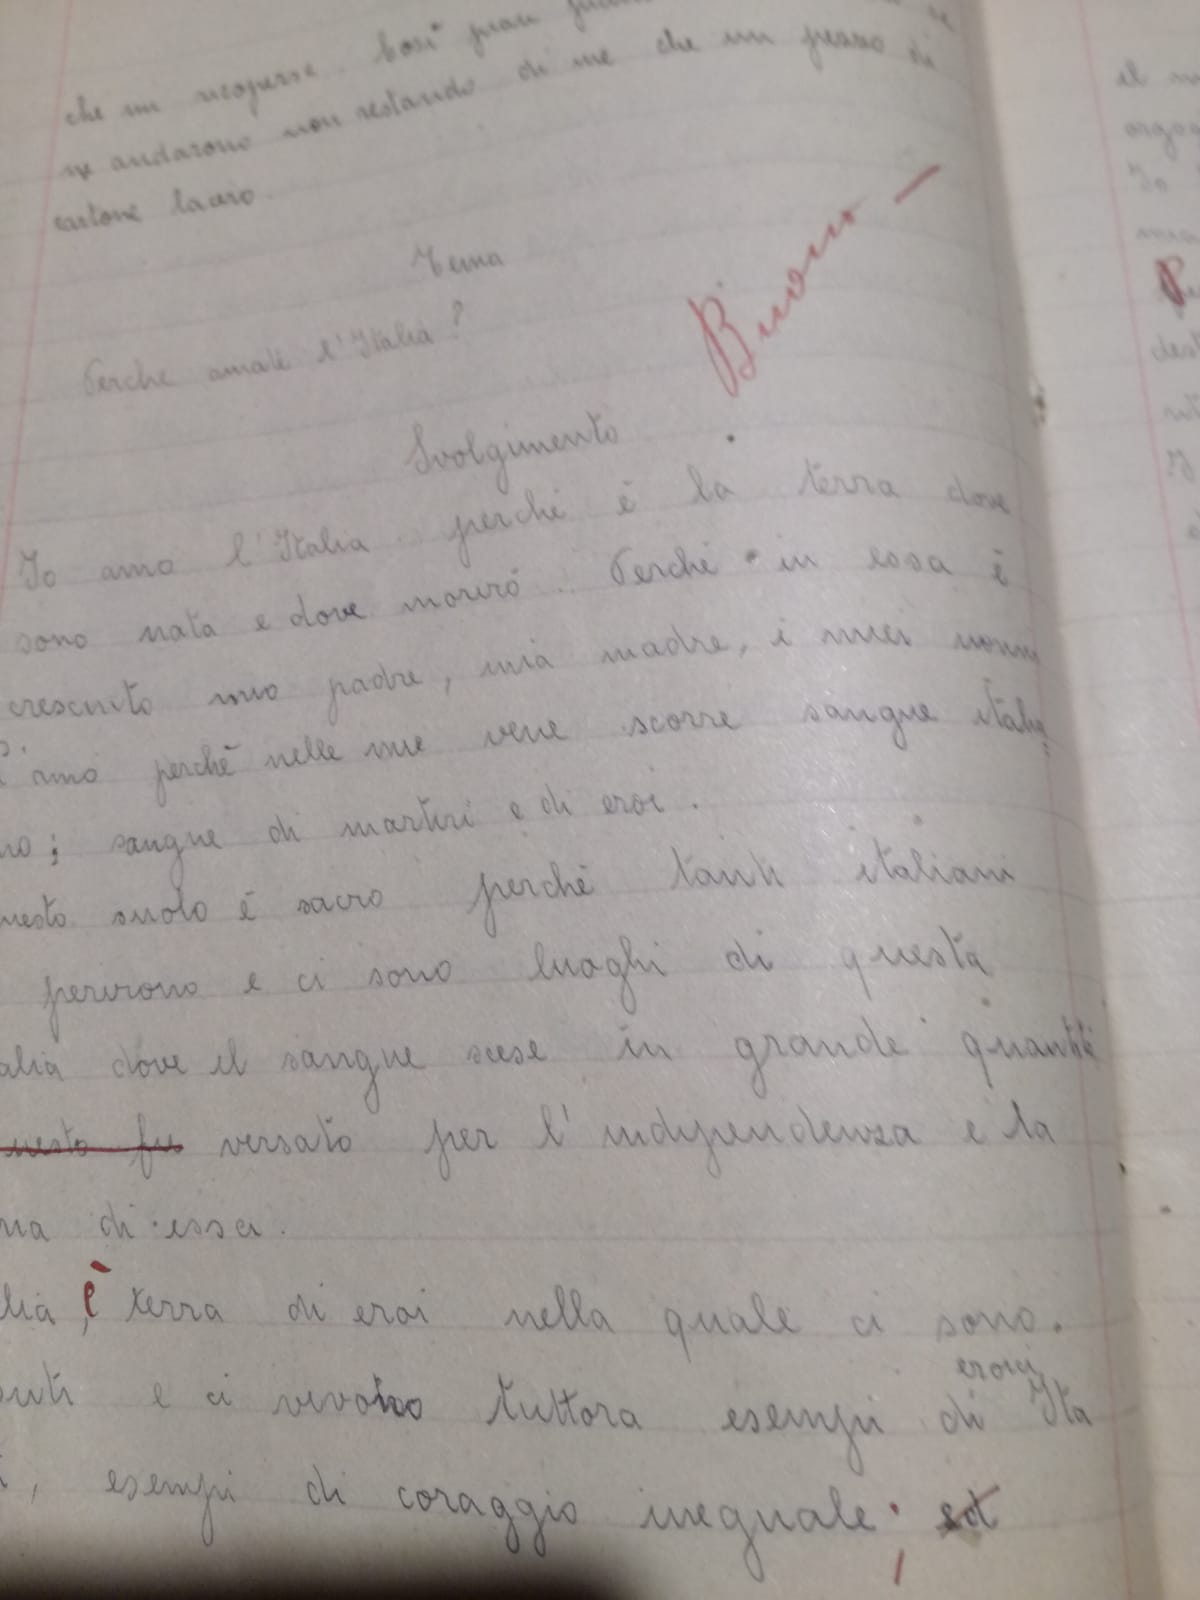 che mi ricoperse. Così pian
se andarono non restando di me che un pezzo di
cartone lacero.
Tema
Buono -
Perchè amate l'Italia?
Svolgimento
Io amo l'Italia perché é la terra dove
sono nata e dove moriró. Perché in essa è
cresciuto mio padre, mia madre, i miei nonni
L'amo perchè nelle mie vene scorre sangue italia
no; sangue di martiri e di eroi.
uesto suolo é sacro perchè tanti italiani
perirono e ci sono luoghi di questa
alia dove il sangue scese in grande quantità
uesto fu versato per l'indipendenza e la
ria di essa.
lia, è terra di eroi nella quale ci sono
eroici
uti e ci vivono tuttora esempi di Ita
i, esempi di coraggio ineguale;
il
orgog
Io
mia
dest